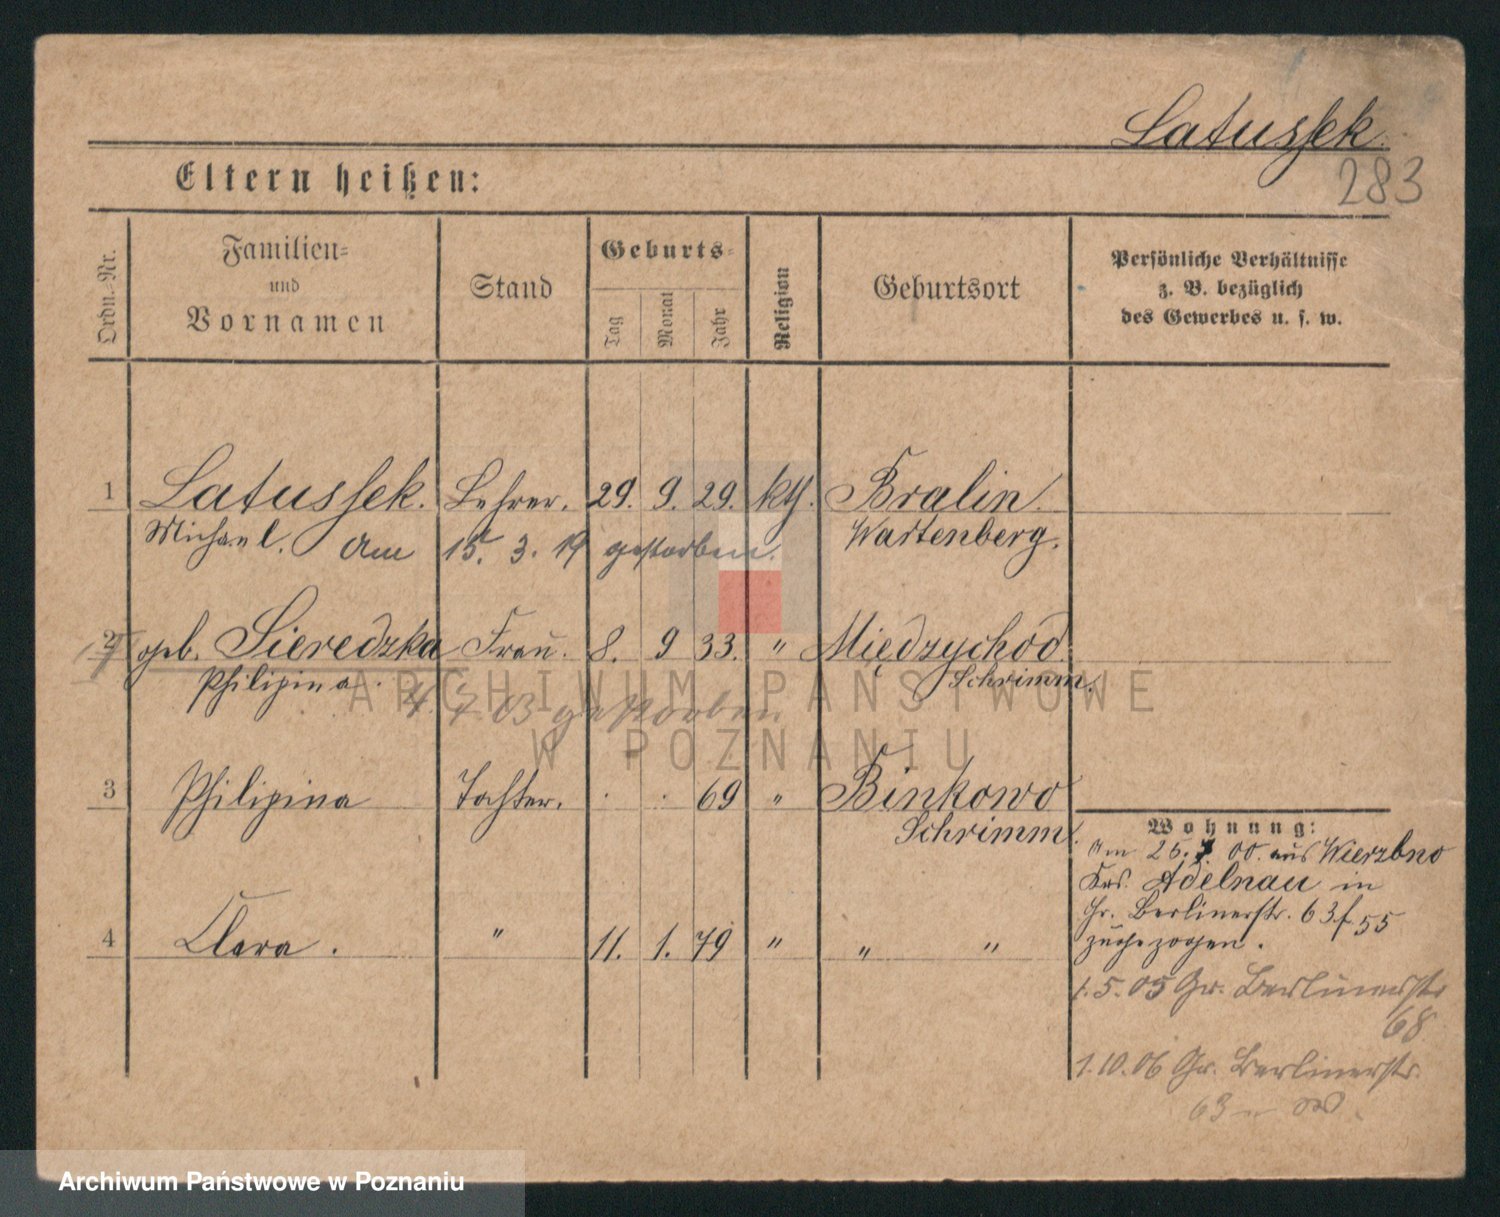 Latussek
283
Eltern heißen:
Ordn.-Nr.
Familien-
und
Vornamen
Stand
Geburts-
Tag
Monat
Jahr
Religion
Geburtsort
Persönliche Verhältnisse
z. B. bezüglich
des Gewerbes u. s. w.
1 Latussek. Lehrer. 29. 9. 29. kth. Bralin.
Michael. Am 15. 3. 19 gestorben. Wartenberg.
2 geb. Sieredzka Frau. 8. 9 33. " Międzychod
Philipina. Schrimm.
4. 7 03 gestorben
3 Philipina Tochter. . . 69 " Binkowo
Schrimm.
4 Clara. " 11. 1. 79 " " "
Wohnung:
Am 26. 7. 00. aus Wierzbno
Krs. Adelnau in
Gr. Berlinerstr. 63 f. 55
zugezogen.
1. 5. 05 Gr. Berlinerstr
68
1. 10. 06 Gr. Berlinerstr.
63
ARCHIWUM PAŃSTWOWE
W POZNANIU
Archiwum Państwowe w Poznaniu